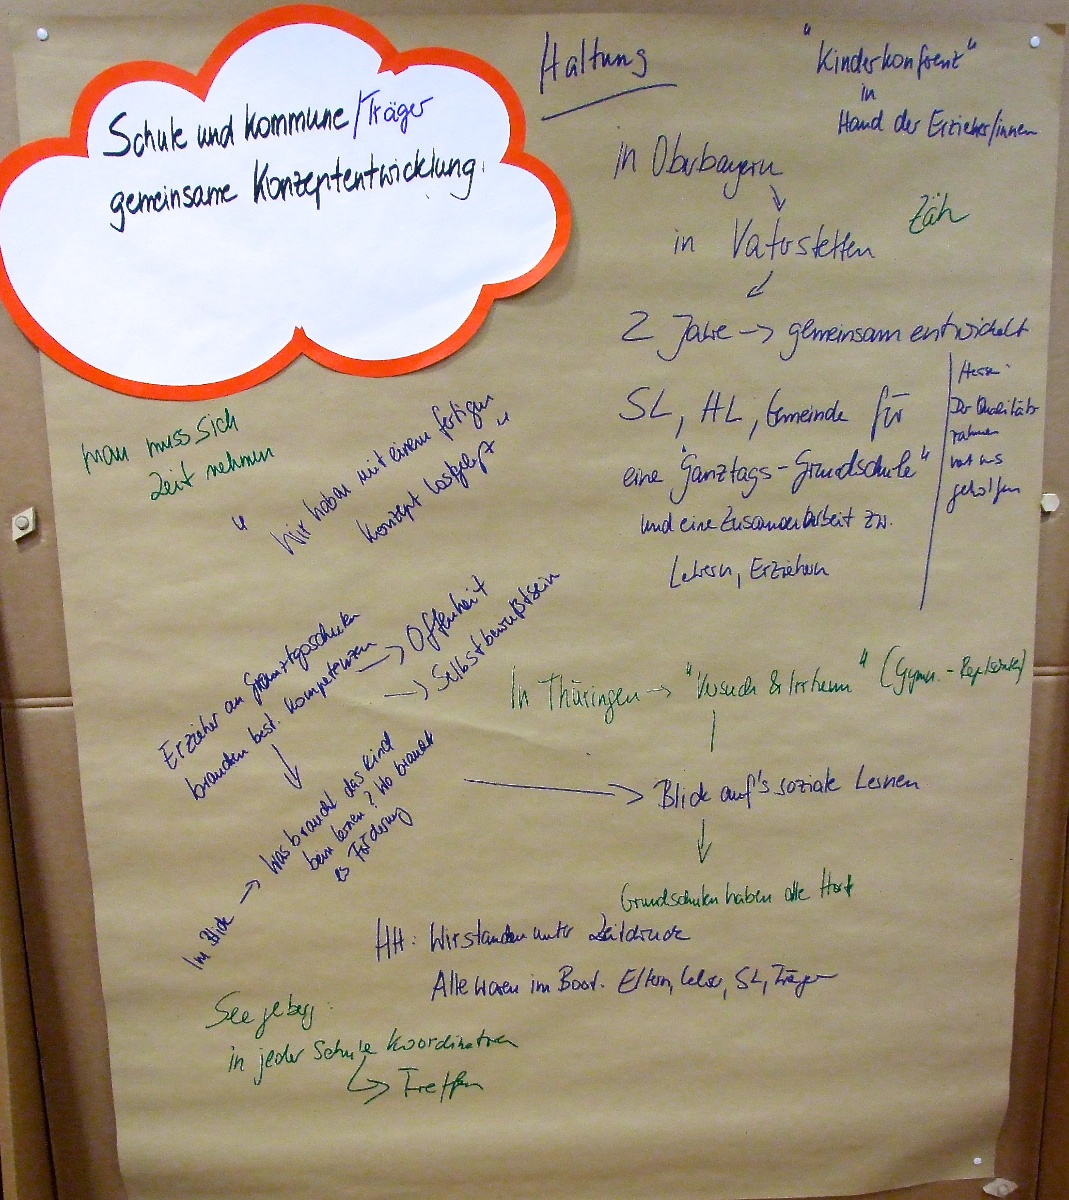 Schule und Kommune/Träger
gemeinsame Konzeptentwicklung.
Haltung
"Kinderkonferenz"
in
Hand der Erzieher/innen
in Oberbayern
zäh
in Vaterstetten
2 Jahre → gemeinsam entwickelt
SL, HL, Gemeinde für
eine "Ganztags-Grundschule"
und eine Zusammenarbeit zw.
Lehrern, Erziehern
Hessen:
Der Qualitäts
rahmen
hat uns
geholfen
man muss sich
Zeit nehmen
"Wir haben mit einem fertigen
Konzept losgelegt"
Erzieher an Ganztagsschulen
brauchen best. Kompetenzen
→ Offenheit
→ Selbstbewußtsein
Im Blick → Was braucht das Kind
beim Lernen? Wo braucht
es Förderung
In Thüringen → "Versuch & Irrtum" (Gymn. -
Blick auf's soziale Lernen
Grundschulen haben alle Hort
HH: Wir standen unter Zeitdruck
Alle waren im Boot. Eltern, Lehrer, SL, Träger
Segeberg:
in jeder Schule Koordinatoren
Treffen